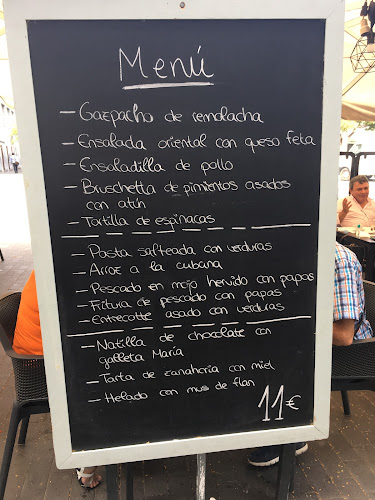 Menú
- Gazpacho de remolacha
- Ensalada oriental con queso feta
- Ensaladilla de pollo
- Bruschetta de pimientos asados
con atún
- Tortilla de espinacas
- Pasta salteada con verduras
- Arroz a la cubana
- Pescado en mojo hervido con papas
- Fritura de pescado con papas
- Entrecotte asado con verduras
- Natilla de chocolate con
galleta María
- Tarta de zanahoria con miel
- Helado con mus de flan
11€